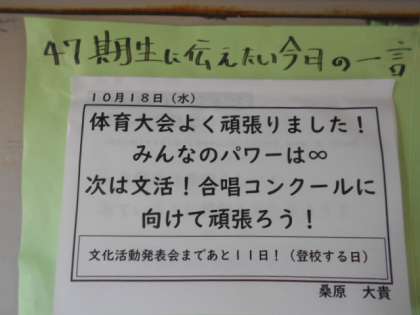 47期生に伝えたい今日の一言
10月18日（水）
体育大会よく頑張りました！
みんなのパワーは∞
次は文活！合唱コンクールに
向けて頑張ろう！
文化活動発表会まであと11日！（登校する日）
桑原　大貴